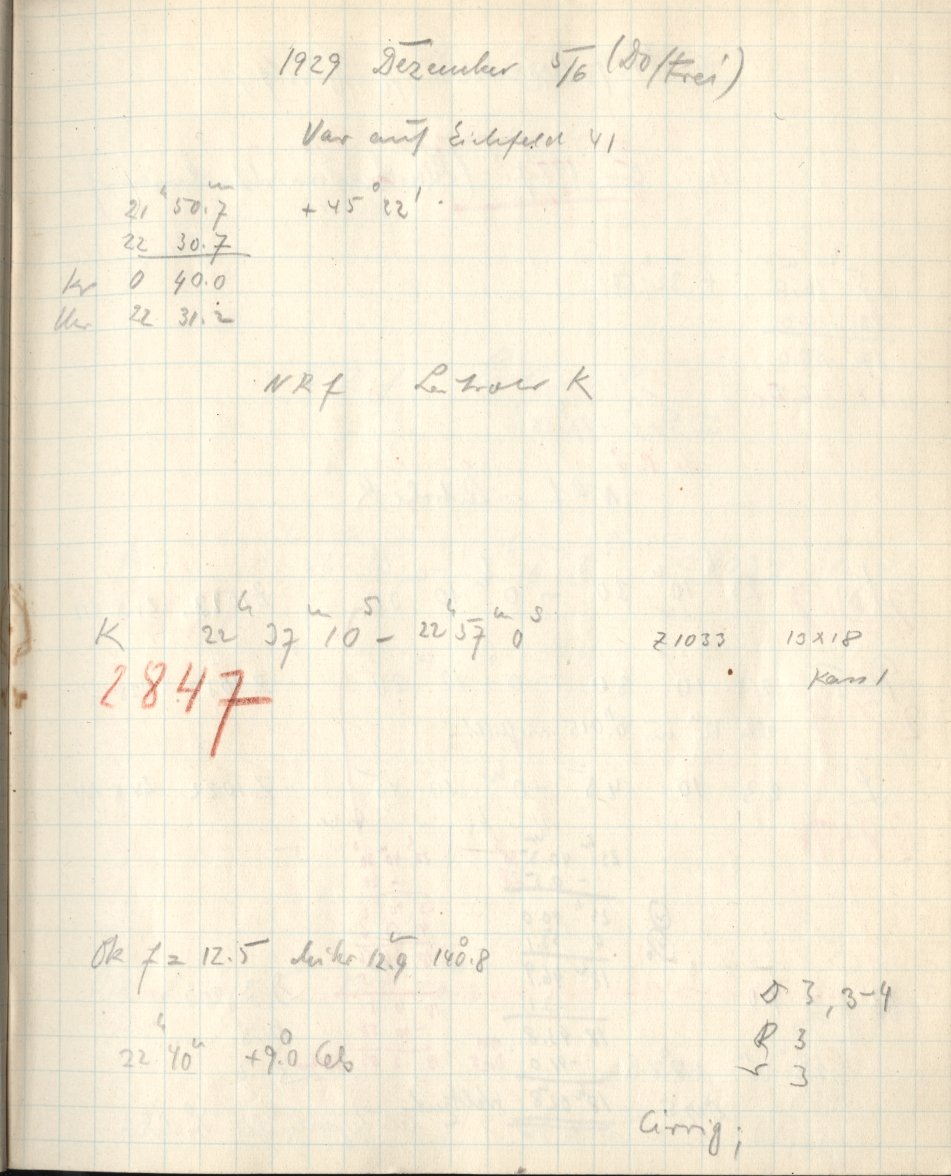 1929 Dezember 5/6 (Do/Frei)
Var auf Eichfeld 41
21ʰ 50.7ᵐ +45° 22'
22 30.7
0 40.0
Uhr 22 31.2
NRf Leitrohr K
K 22ʰ 37ᵐ 10ˢ – 22ʰ 57ᵐ 0ˢ Z1033 13x18
Kass 1
2847
Ok f = 12.5 Mikr 12.9 140°.8
D 3, 3-4
R 3
3
22ʰ 40ᵐ +9°.0 Cels
Cirrig;